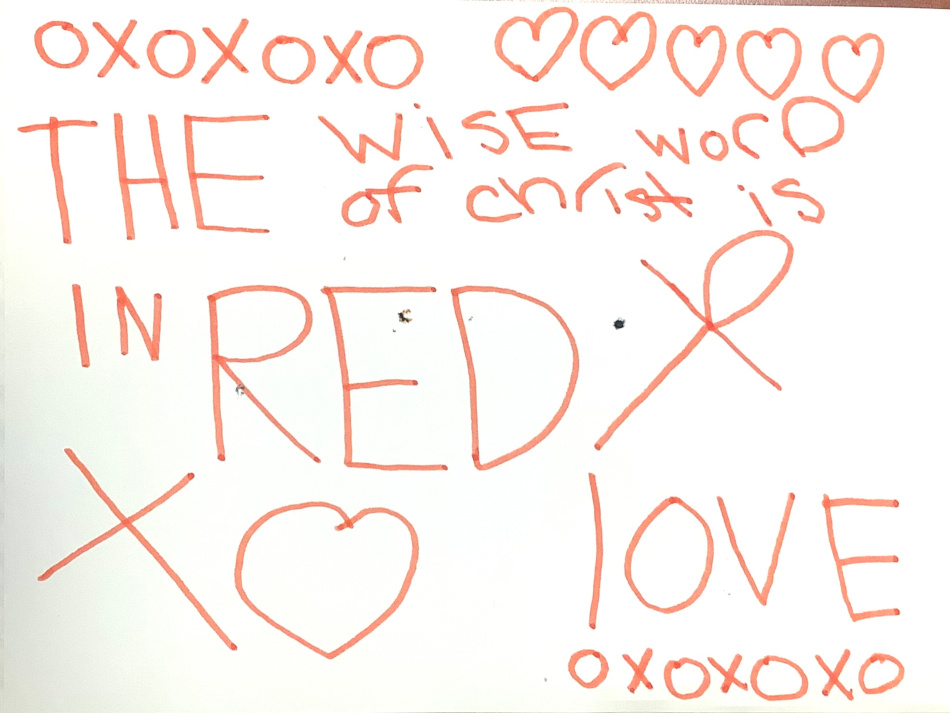 OXOXOXO
THE WiSE worD
of christ is
IN RED X
X lOVE
OXOXOXO